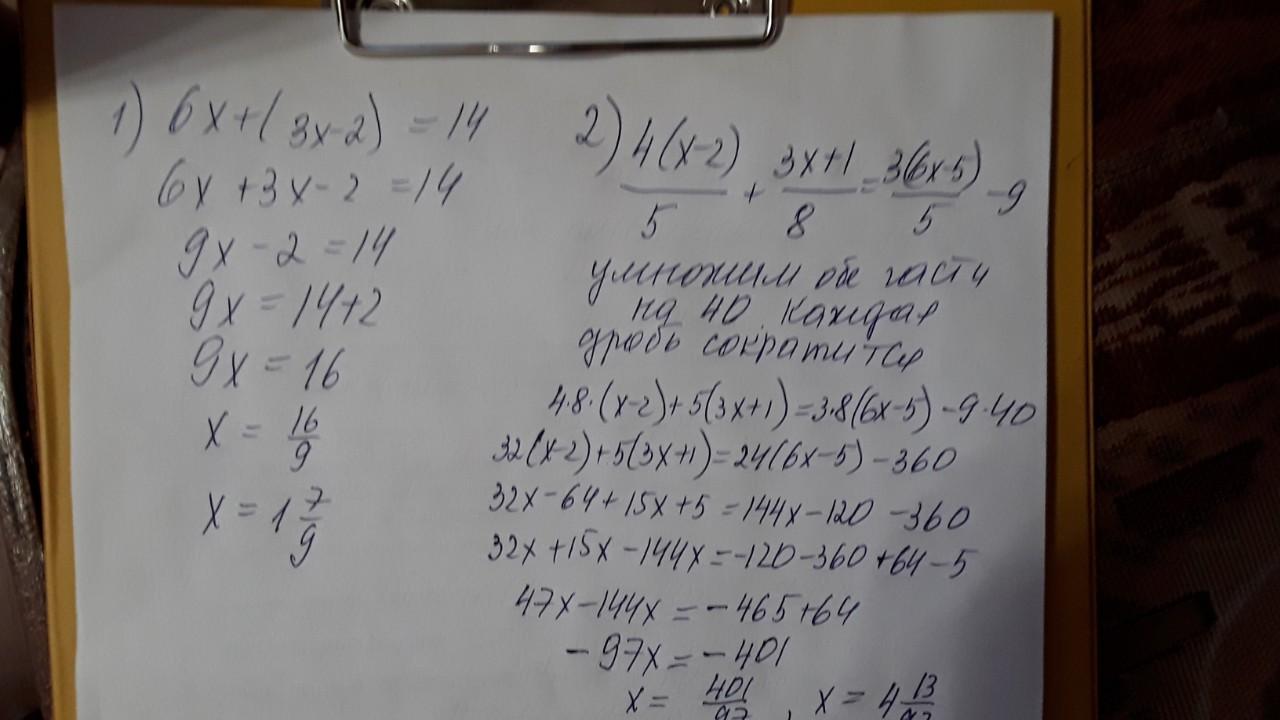 1) 6x+(3x-2) = 14
6x+3x-2 = 14
9x-2 = 14
9x = 14+2
9x = 16
x = 16/9
x = 1 7/9
2) 4(x-2)/5 + 3x+1/8 = 3(6x-5)/5 -9
умножим обе части
на 40. Каждая
дробь сократится
4·8·(x-2)+5(3x+1)=3·8(6x-5)-9·40
32(x-2)+5(3x+1)=24(6x-5)-360
32x-64+15x+5=144x-120-360
32x+15x-144x=-120-360+64-5
47x-144x=-465+64
-97x=-401
x = 401/97, x = 4 13/97